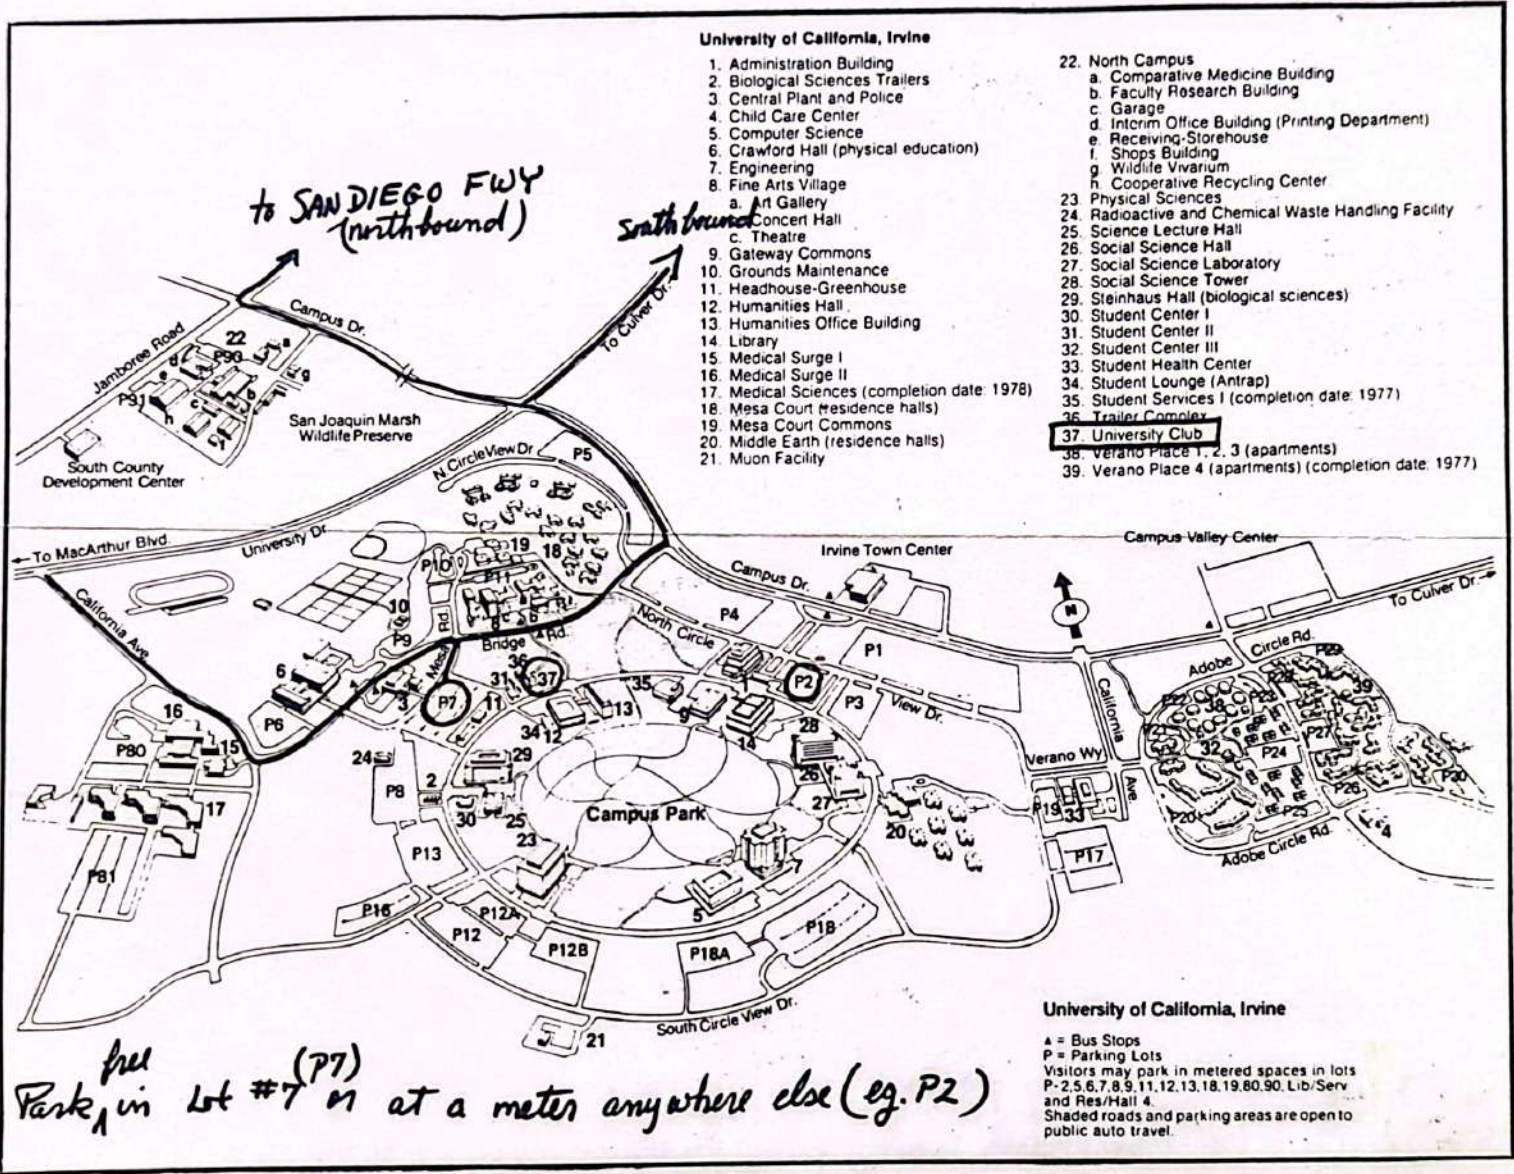 University of California, Irvine
1. Administration Building
2. Biological Sciences Trailers
3. Central Plant and Police
4. Child Care Center
5. Computer Science
6. Crawford Hall (physical education)
7. Engineering
8. Fine Arts Village
a. Art Gallery
Concert Hall
c. Theatre
9. Gateway Commons
10. Grounds Maintenance
11. Headhouse-Greenhouse
12. Humanities Hall
13. Humanities Office Building
14. Library
15. Medical Surge I
16. Medical Surge II
17. Medical Sciences (completion date: 1978)
18. Mesa Court (residence halls)
19. Mesa Court Commons
20. Middle Earth (residence halls)
21. Muon Facility
22. North Campus
a. Comparative Medicine Building
b. Faculty Research Building
c. Garage
d. Interim Office Building (Printing Department)
e. Receiving-Storehouse
f. Shops Building
g. Wildlife Vivarium
h. Cooperative Recycling Center
23. Physical Sciences
24. Radioactive and Chemical Waste Handling Facility
25. Science Lecture Hall
26. Social Science Hall
27. Social Science Laboratory
28. Social Science Tower
29. Steinhaus Hall (biological sciences)
30. Student Center I
31. Student Center II
32. Student Center III
33. Student Health Center
34. Student Lounge (Antrap)
35. Student Services I (completion date: 1977)
36. Trailer Complex
37. University Club
38. Verano Place 1, 2, 3 (apartments)
39. Verano Place 4 (apartments) (completion date: 1977)
to SAN DIEGO FWY
(northbound)
southbound
To Culver Dr.
Campus Dr.
Jamboree Road
22
P90
a
d
e
g
b
c
h
f
P91
San Joaquin Marsh
Wildlife Preserve
South County
Development Center
N Circle View Dr
P5
To MacArthur Blvd.
University Dr.
California Ave.
19
18
P10
P11
10
P9
Mesa Rd.
Bridge Rd.
8
6
3
P6
P7
11
31
36
37
34
12
13
35
9
1
14
P2
P3
P1
P4
North Circle
View Dr.
Campus Dr.
Irvine Town Center
Campus Valley Center
N
To Culver Dr.
Adobe Circle Rd.
California Ave.
Verano Wy
P29
P28
39
P22
P23
38
P21
32
P24
P27
P26
P30
P25
P20
4
Adobe Circle Rd.
P19
33
P17
16
P80
15
17
P81
24
P8
2
29
30
25
23
Campus Park
28
26
27
20
7
5
P13
P16
P12A
P12
P12B
P18A
P18
South Circle View Dr.
21
Park free in Lot #7 (P7) or at a meter anywhere else (eg. P2)
University of California, Irvine
▲ = Bus Stops
P = Parking Lots
Visitors may park in metered spaces in lots
P-2,5,6,7,8,9,11,12,13,18,19,80,90, Lib/Serv
and Res/Hall 4.
Shaded roads and parking areas are open to
public auto travel.